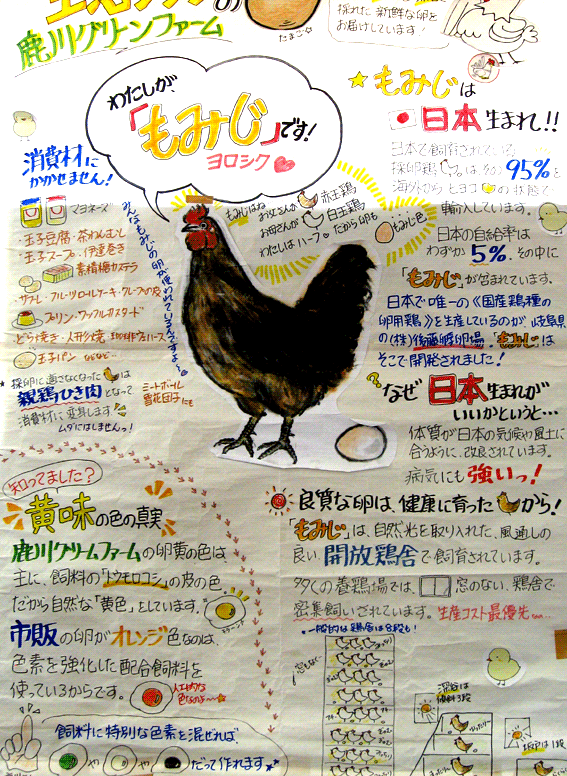 鹿川グリーンファーム
の
たまご
採れた新鮮な卵を
お届けしています!
わたしが
「もみじ」です!
ヨロシク
もみじは
日本生まれ!!
日本で飼育されている
採卵鶏はその95%を
海外からヒヨコの状態で
輸入しています。
日本の自給率は
わずか5%。その中に
「もみじ」が含まれています。
日本で唯一の《国産鶏種の
卵用鶏》を生産しているのが、岐阜県
の(株)後藤孵卵場。「もみじ」は
そこで開発されました!
消費材に
かかせません!
マヨネーズ
玉子豆腐・茶わんむし
玉子スープ・伊達巻き
素精糖カステラ
サブレ・フルーツロールケーキ・クレープの皮
プリン・ワッフルカスタード
どら焼き・人形焼
玉子パン などなど…
みんなもみじの卵が使われているんですよ~
もみじはね
お父さんが赤玉鶏
お母さんが白玉鶏
わたしはハーフ だから卵も
もみじ色
採卵に適さなくなった は
親鶏ひき肉となって
消費材に変身します
ムダにはしませんっ!
ミートボール
雪花団子にも
なぜ日本生まれが
いいかというと…
体質が日本の気候や風土に
合うように、改良されています。
病気にも強いっ!
知ってました?
黄味の色の真実
鹿川グリームファームの卵黄の色は、
主に、飼料の「トウモロコシ」の皮の色
だから自然な「黄色」としています。
市販の卵がオレンジ色なのは、
色素を強化した配合飼料を
使っているからです。
飼料に特別な色素を混ぜれば、
や や だって作れます
良質な卵は、健康に育った から!
「もみじ」は、自然光を取り入れた、風通しの
良い開放鶏舎で飼育されています。
多くの養鶏場では、 窓のない、鶏舎で
密集飼いされています。生産コスト最優先…
一般的な鶏舎は8段も!
窓もなく